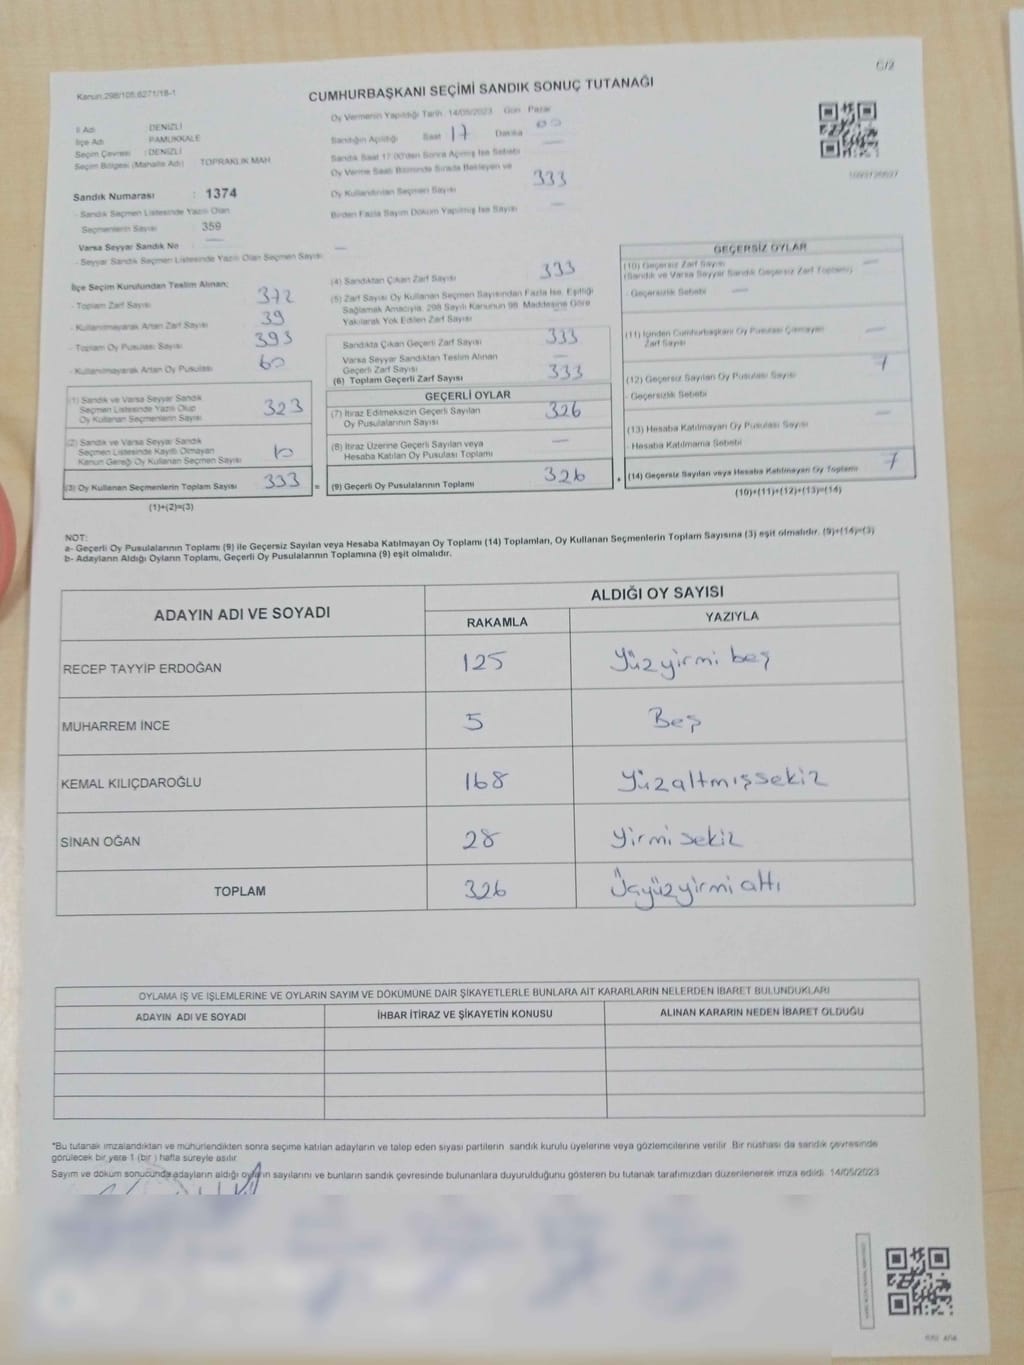 Kanun:298/105,6271/18-1
C/2
CUMHURBAŞKANI SEÇİMİ SANDIK SONUÇ TUTANAĞI
İl Adı DENİZLİ
İlçe Adı PAMUKKALE
Seçim Çevresi : DENİZLİ
Seçim Bölgesi (Mahalle Adı) TOPRAKLIK MAH.
Sandık Numarası : 1374
- Sandık Seçmen Listesinde Yazılı Olan
Seçmenlerin Sayısı 359
Varsa Seyyar Sandık No —
- Seyyar Sandık Seçmen Listesinde Yazılı Olan Seçmen Sayısı —
Oy Vermenin Yapıldığı Tarih : 14/05/2023 Gün Pazar
Sandığın Açıldığı Saat 17 Dakika 00
Sandık Saat 17:00'den Sonra Açılmış İse Sebebi —
Oy Verme Saati Bitiminde Sırada Bekleyen ve
Oy Kullandırılan Seçmen Sayısı 333
Birden Fazla Sayım Döküm Yapılmış İse Sayısı —
İlçe Seçim Kurulundan Teslim Alınan;
- Toplam Zarf Sayısı 372
- Kullanılmayarak Artan Zarf Sayısı 39
- Toplam Oy Pusulası Sayısı 393
- Kullanılmayarak Artan Oy Pusulası 60
(1) Sandık ve Varsa Seyyar Sandık
Seçmen Listesinde Yazılı Olup
Oy Kullanan Seçmenlerin Sayısı 323
(2) Sandık ve Varsa Seyyar Sandık
Seçmen Listesinde Kayıtlı Olmayan
Kanun Gereği Oy Kullanan Seçmen Sayısı 10
(3) Oy Kullanan Seçmenlerin Toplam Sayısı 333 =
(1)+(2)=(3)
(4) Sandıktan Çıkan Zarf Sayısı 333
(5) Zarf Sayısı Oy Kullanan Seçmen Sayısından Fazla İse, Eşitliği
Sağlamak Amacıyla, 298 Sayılı Kanunun 98. Maddesine Göre
Yakılarak Yok Edilen Zarf Sayısı —
Sandıkta Çıkan Geçerli Zarf Sayısı 333
Varsa Seyyar Sandıktan Teslim Alınan
Geçerli Zarf Sayısı —
(6) Toplam Geçerli Zarf Sayısı 333
GEÇERLİ OYLAR
(7) İtiraz Edilmeksizin Geçerli Sayılan
Oy Pusulalarının Sayısı 326
(8) İtiraz Üzerine Geçerli Sayılan veya
Hesaba Katılan Oy Pusulası Toplamı —
(9) Geçerli Oy Pusulalarının Toplamı 326 +
GEÇERSİZ OYLAR
(10) Geçersiz Zarf Sayısı —
(Sandık ve Varsa Seyyar Sandık Geçersiz Zarf Toplamı)
- Geçersizlik Sebebi —
(11) İçinden Cumhurbaşkanı Oy Pusulası Çıkmayan
Zarf Sayısı —
(12) Geçersiz Sayılan Oy Pusulası Sayısı 7
- Geçersizlik Sebebi
(13) Hesaba Katılmayan Oy Pusulası Sayısı —
- Hesaba Katılmama Sebebi
(14) Geçersiz Sayılan veya Hesaba Katılmayan Oy Toplamı 7
(10)+(11)+(12)+(13)=(14)
NOT:
a- Geçerli Oy Pusulalarının Toplamı (9) ile Geçersiz Sayılan veya Hesaba Katılmayan Oy Toplamı (14) Toplamları, Oy Kullanan Seçmenlerin Toplam Sayısına (3) eşit olmalıdır. (9)+(14)=(3)
b- Adayların Aldığı Oyların Toplamı, Geçerli Oy Pusulalarının Toplamına (9) eşit olmalıdır.
ADAYIN ADI VE SOYADI
ALDIĞI OY SAYISI
RAKAMLA YAZIYLA
RECEP TAYYİP ERDOĞAN 125 Yüzyirmi beş
MUHARREM İNCE 5 Beş
KEMAL KILIÇDAROĞLU 168 Yüzaltmışsekiz
SİNAN OĞAN 28 Yirmi sekiz
TOPLAM 326 Üçyüzyirmi altı
OYLAMA İŞ VE İŞLEMLERİNE VE OYLARIN SAYIM VE DÖKÜMÜNE DAİR ŞİKAYETLERLE BUNLARA AİT KARARLARIN NELERDEN İBARET BULUNDUKLARI
ADAYIN ADI VE SOYADI İHBAR İTİRAZ VE ŞİKAYETİN KONUSU ALINAN KARARIN NEDEN İBARET OLDUĞU
*Bu tutanak imzalandıktan ve mühürlendikten sonra seçime katılan adayların ve talep eden siyasi partilerin sandık kurulu üyelerine veya gözlemcilerine verilir. Bir nüshası da sandık çevresinde
görülecek bir yere 1 (bir ) hafta süreyle asılır.
Sayım ve döküm sonucunda adayların aldığı oyların sayılarını ve bunların sandık çevresinde bulunanlara duyurulduğunu gösteren bu tutanak tarafımızdan düzenlenerek imza edildi. 14/05/2023